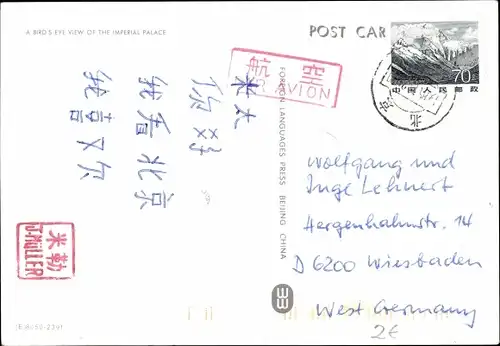 A BIRD'S EYE VIEW OF THE IMPERIAL PALACE
POST CAR
70分
中国人民邮政
航空
PAR AVION
北京
FOREIGN LANGUAGES PRESS BEIJING CHINA
米太
你好
我看北京
我喜又尔
米勒
J·MÜLLER
Wolfgang und
Inge Lehnert
Hergenhahnstr. 14
D 6200 Wiesbaden
West Germany
2€